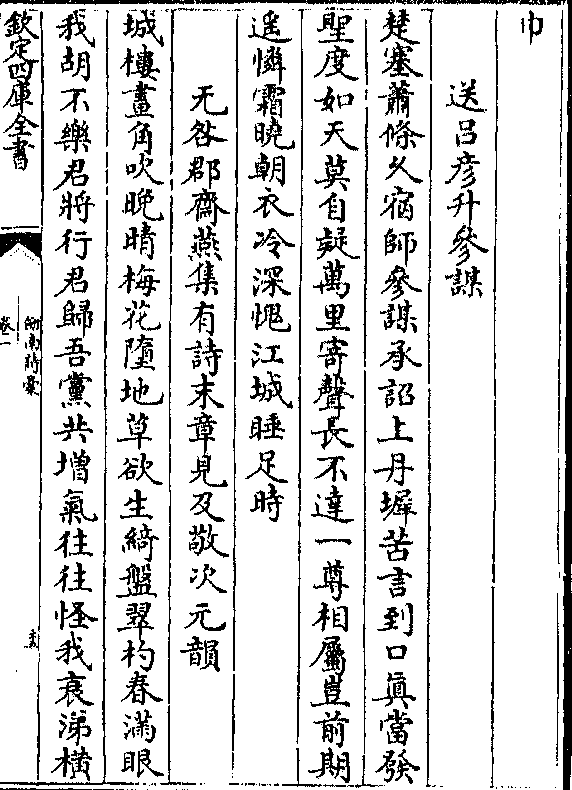 巾
送呂彦升參謀
楚塞蕭條久宿師參謀承詔上丹墀苦言到口真當發
聖度如天莫自疑萬里寄聲長不達一尊相屬豈前期
遥憐霜曉朝衣冷深愧江城睡足時
无咎郡齋燕集有詩末章見及敬次元韻
城樓畫角吹晚晴梅花墮地草欲生綺盤翠杓春滿眼
我胡不樂君將行君歸吾黨共增氣往往怪我衰涕橫
欽定四庫全書
劒南詩稾
卷一